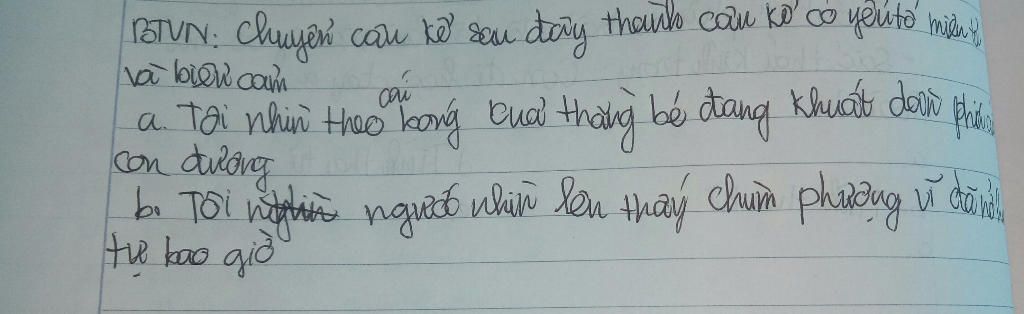 BTVN: Chuyển câu kể sau đây thành câu kể có yếu tố miêu tả
và biểu cảm
a. Tôi nhìn theo cái bóng của thằng bé đang khuất dần phía
con đường
b. Tôi ngước nhìn lên thấy chùm phượng vĩ đã nở
tự bao giờ